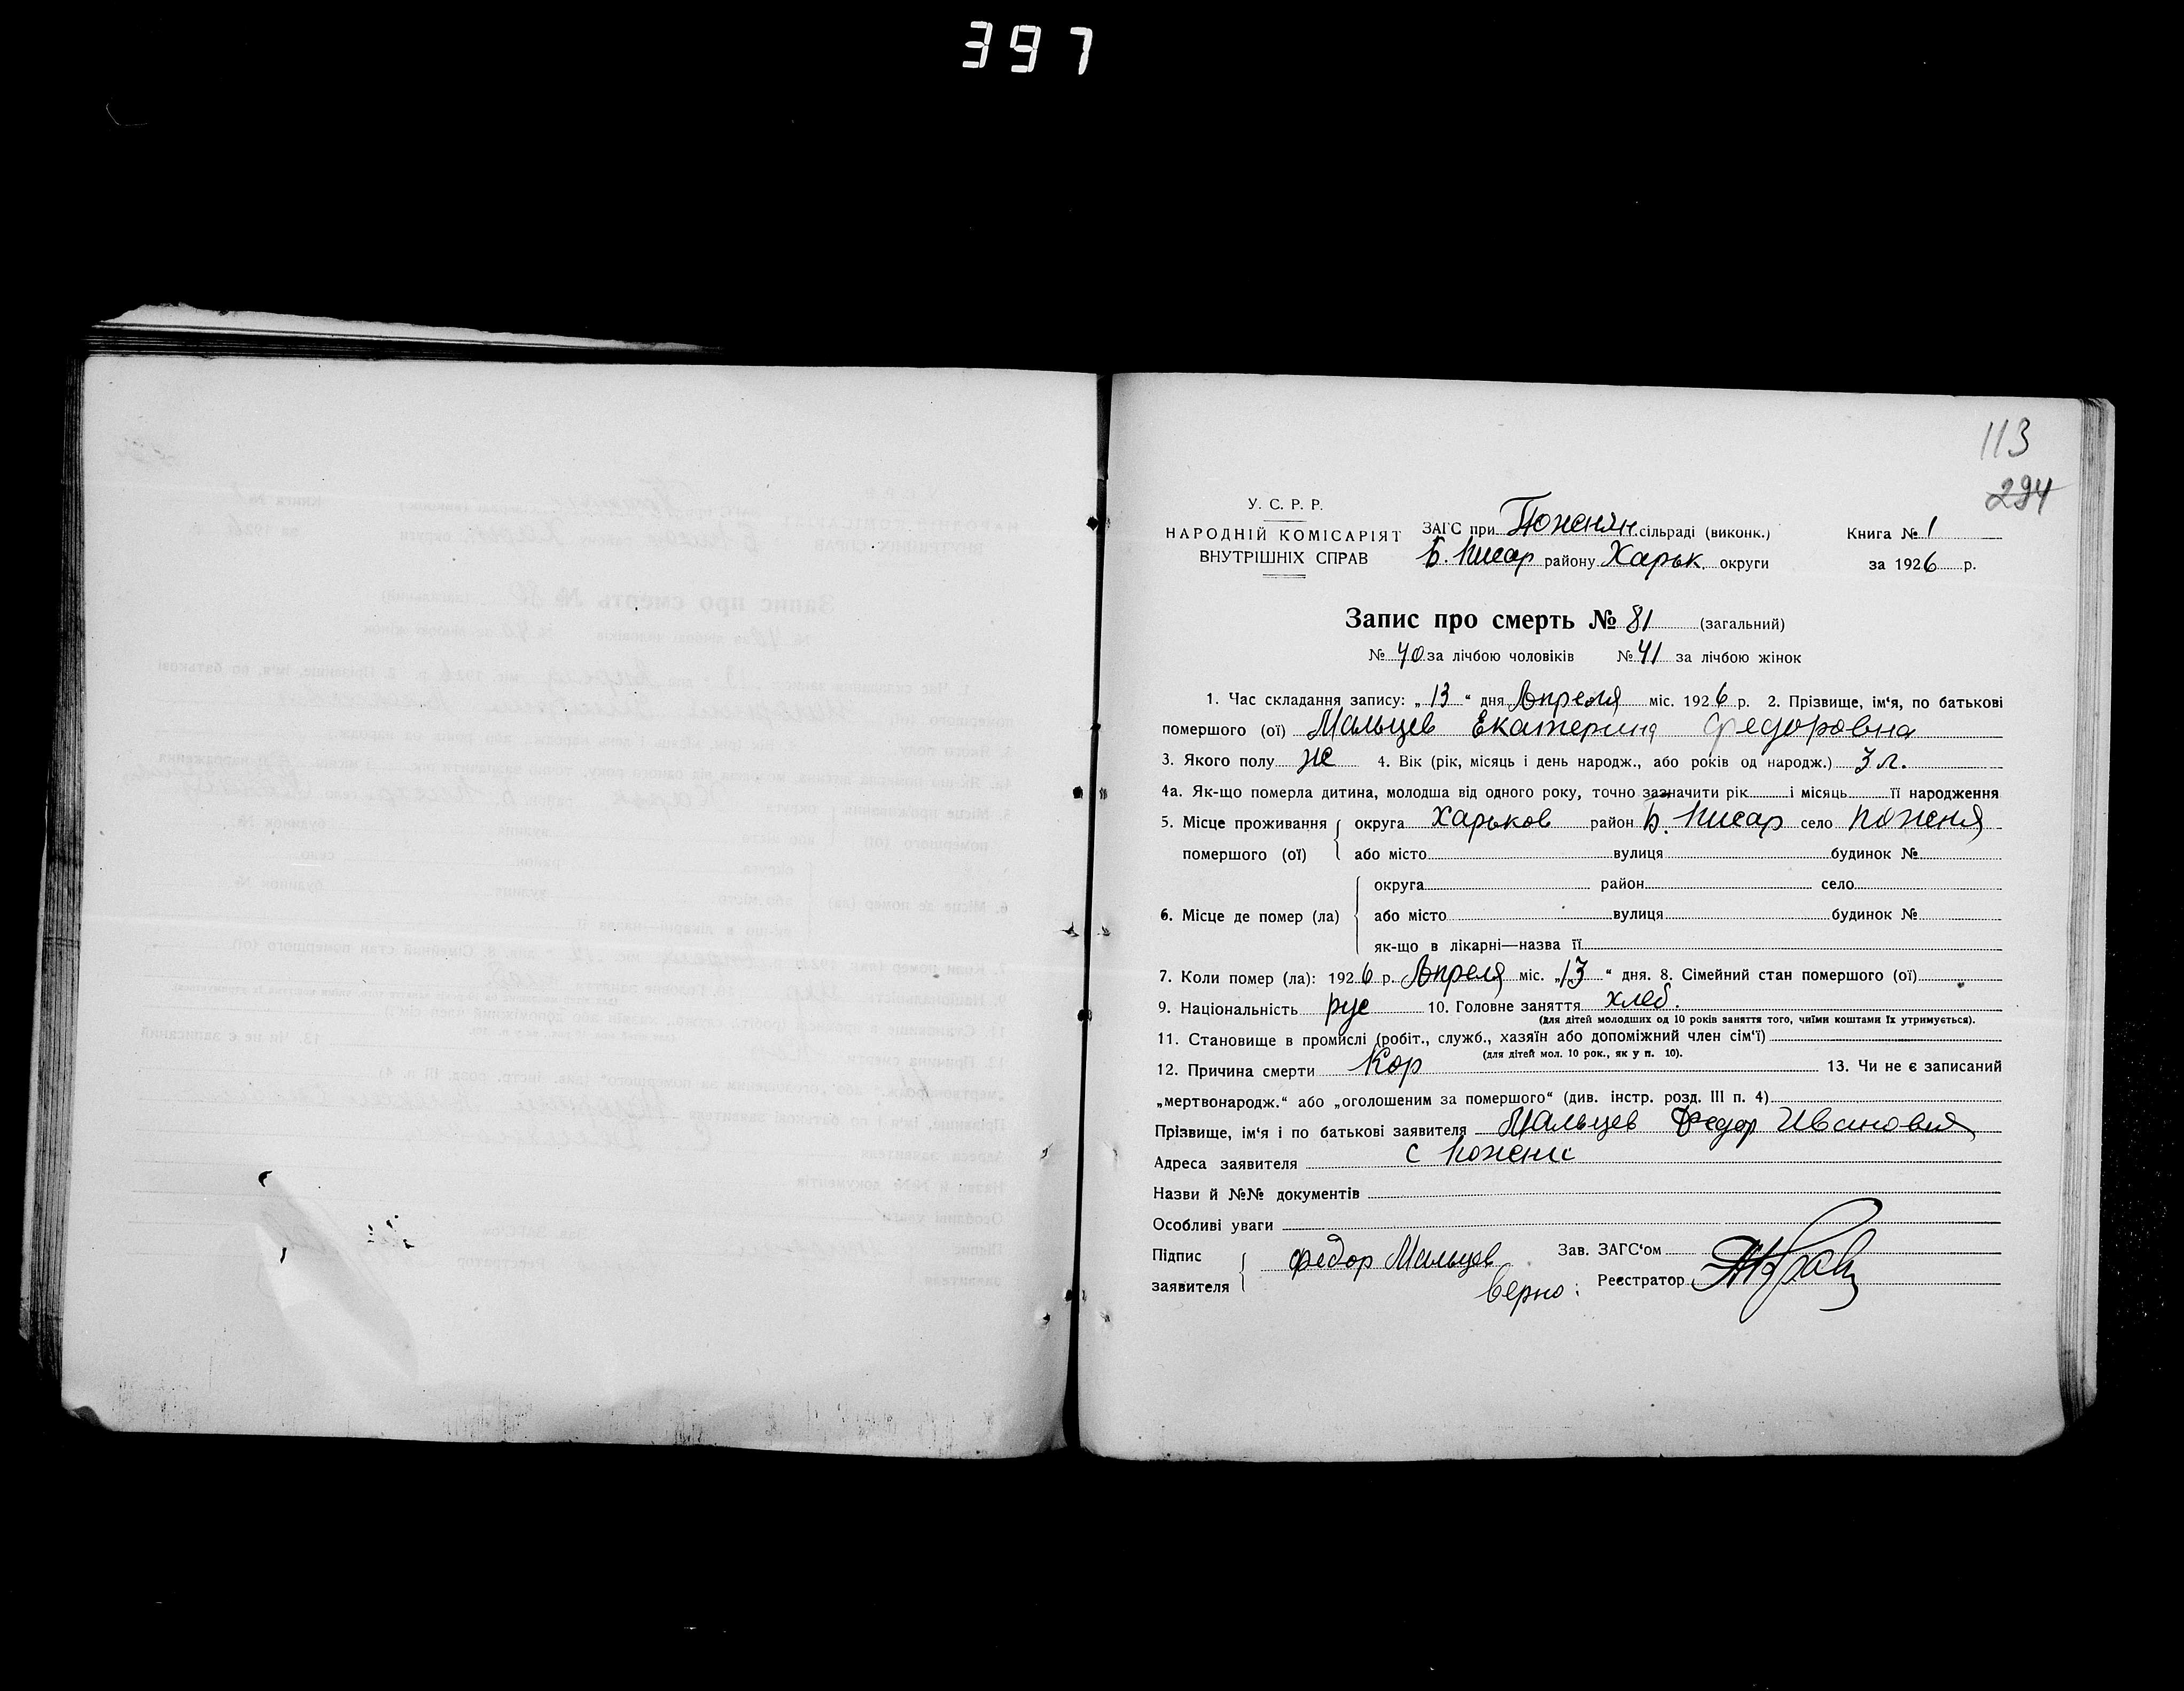 397
113
294
У. С. Р. Р.
НАРОДНІЙ КОМІСАРІЯТ
ВНУТРІШНІХ СПРАВ
ЗАГС при Пожнян сільраді (виконк.)
Б. Писар району Харьк. округи
Книга № 1
за 1926 р.
Запис про смерть № 81 (загальний)
№ 40 за лічбою чоловіків № 41 за лічбою жінок
1. Час складання запису: „ 13 “ дня Апреля міс. 1926 р. 2. Прізвище, ім‘я, по батькові
помершого (ої) Мальцев Екатерина Федоровна
3. Якого полу же 4. Вік (рік, місяць і день народж., або років од народж.) 3 л.
4а. Як-що померла дитина, молодша від одного року, точно зазначити рік і місяць її народження
5. Місце проживання помершого (ої) округа Харьков район Б. Писар село Поженя
або місто вулиця будинок №
6. Місце де помер (ла) округа район село
або місто вулиця будинок №
як-що в лікарні—назва її
7. Коли помер (ла): 1926 р. Апреля міс. „13“ дня. 8. Сімейний стан помершого (ої)
9. Національність рус 10. Головне заняття хлеб.
(для дітей молодших од 10 років заняття того, чиїми коштами їх утримується).
11. Становище в промислі (робіт., служб., хазяїн або допоміжний член сім‘ї)
(для дітей мол. 10 рок., як у п. 10).
12. Причина смерти Кор 13. Чи не є записаний
„мертвонародж.“ або „оголошеним за помершого“ (див. інстр. розд. III п. 4)
Прізвище, ім‘я і по батькові заявителя Мальцев Федор Иванович
Адреса заявителя с Пожени
Назви й №№ документів
Особливі уваги
Підпис заявителя Федор Мальцев
Зав. ЗАГС‘ом
верно: Реєстратор